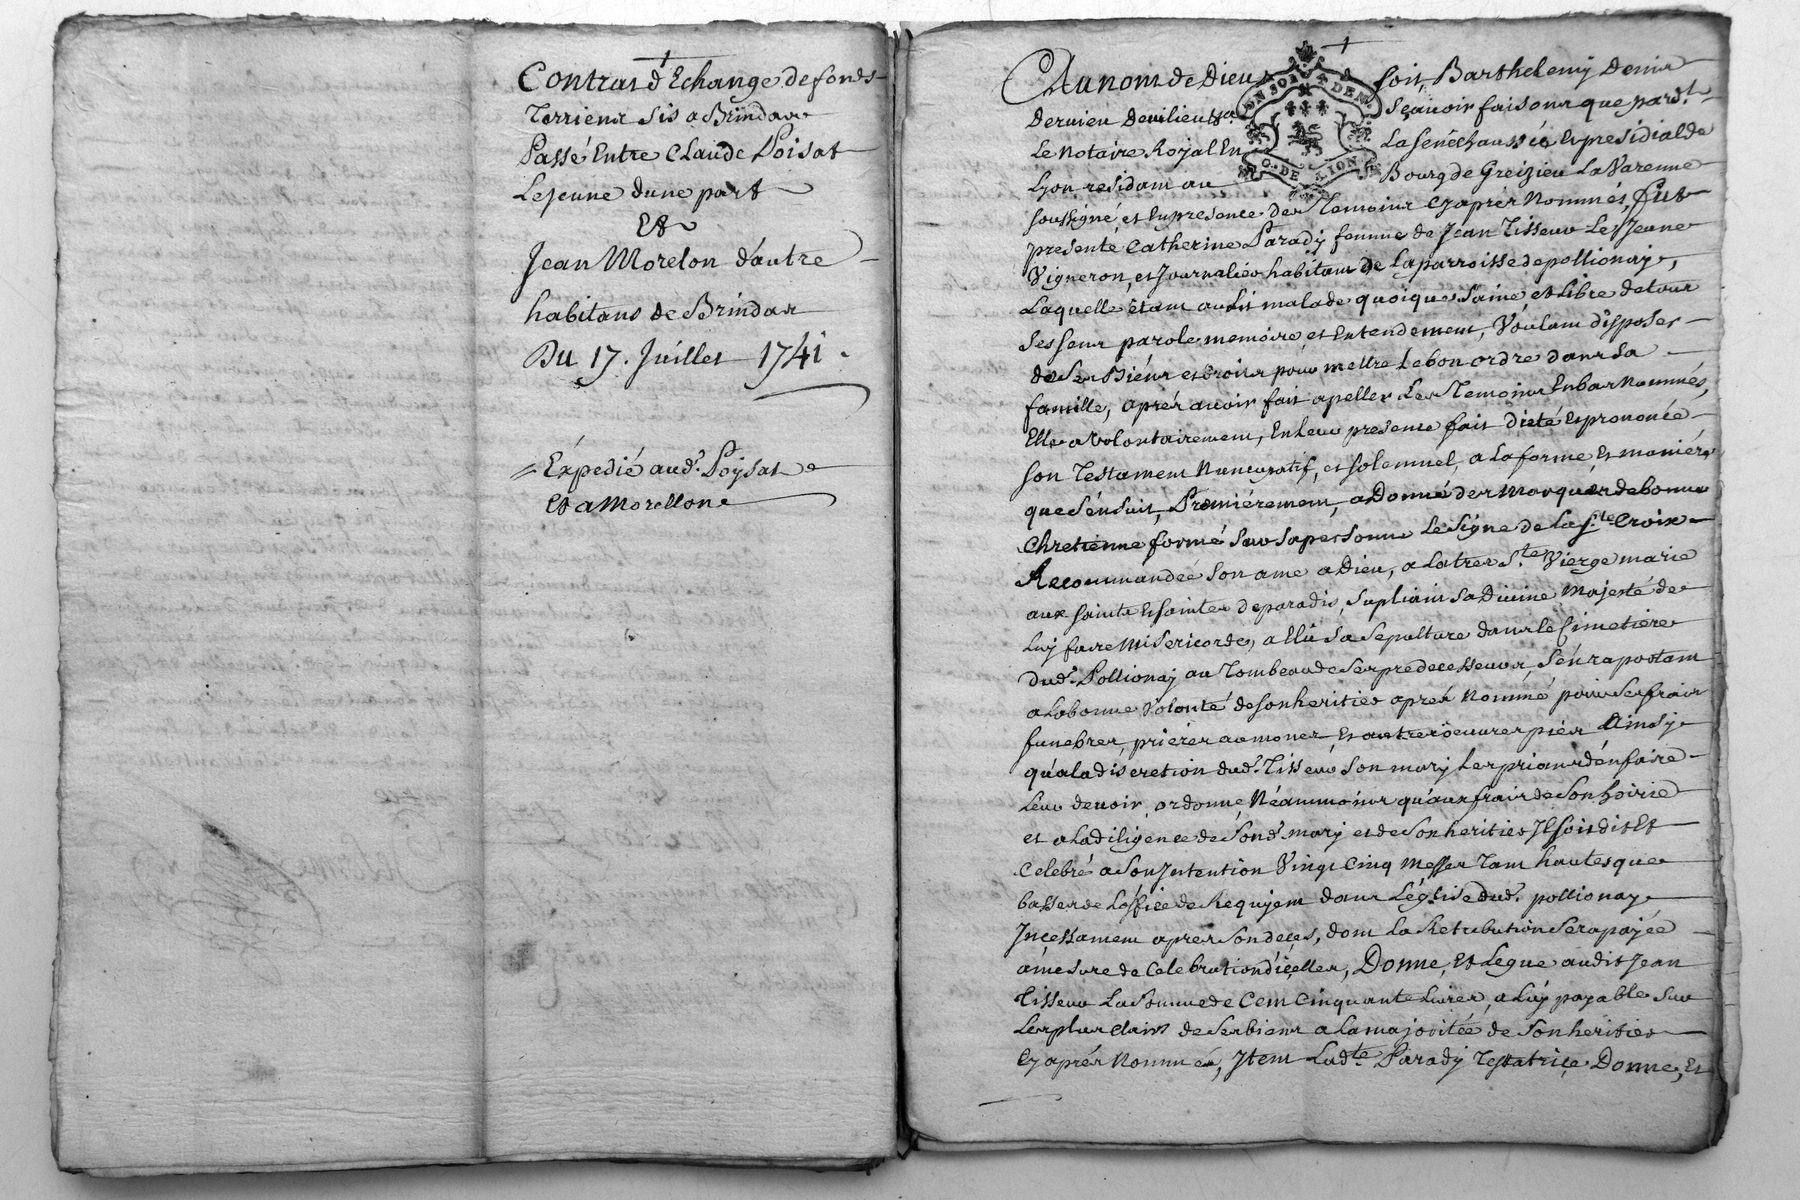 Contrat d'Echange de fonds
Terriens sis a Brindas
Passé Entre Claude Poisat
Le jeune d'une part
Et
Jean Morelon d'autre
habitans de Brindas
Du 17. Juillet 1741.
Expedié aud.t Poysat
Et a Morellon
Au nom de Dieu soit,
Le Notaire Royal En La sénéchaussée Et presidial de
Lyon residant au Bourg de Greizieu La Varenne
soussigné et En presence des Temoins Cy apres Nommés, fut
presenté Catherine Parady femme de Jean Tisseur Le Jeune
Vigneron, et Journalier habitant de La parroisse de pollionay,
Laquelle étant au Lit malade quoique saine et Libre de tous
ses sens parole memoire et Entendement, Voulant disposer
de ses Biens et droits pour mettre Le bon ordre dans sa
famille, aprés avoir fait apeller Les Temoins En bas Nommés,
Elle a volontairement, En Leur presence fait dicté Et prononcé
son Testament Nuncupatif, et solemnel, a La forme, Et maniére
que s'énsuit, Premiérement, a Donné des Marques de bonne
Chretienne formé sur sa personne Le signe de La s.te Croix
Recommandée son ame a Dieu, a La tres S.te Vierge marie
aux saints Et saintes de paradis, supliant sa Divine Majesté de
Luy faire Misericorde, a Ellû sa sepulture dans Le Cimetiére
dud.t Pollionay au Tombeau de ses predecesseurs, s'én raportant
a La bonne Volonté de son heritier aprés Nommé pour ses frais
funebres, priéres aumones, Et autres oeuvres piés Ainsy
qu'a la discretion dud.t Tisseur son mary Les priant d'én faire
Leur devoir, ordonne Néammoins qu'aux frais de son hoirie
et a La diligence de sond.t mary et de son heritier Il soit dit Et
Celebré a son Intention Vingt Cinq Messes Tant hautes que
basses de L'office de Requiem dans L'église dud.t pollionay
Incessament apres son deces, dont La Retribution sera payée
a mesure de Celebration d'icelles, Donne, Et Legue audit Jean
Tisseur La somme de Cent Cinquante Livres, a Luy payable sur
Les plus clairs de ses biens a La majorité de son heritier
Cy aprés Nommé, Item Lad.te Parady Testatrice Donne, Et